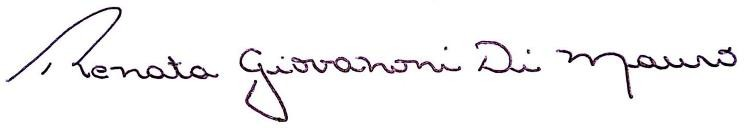 Renata Giovanoni Di Mauro